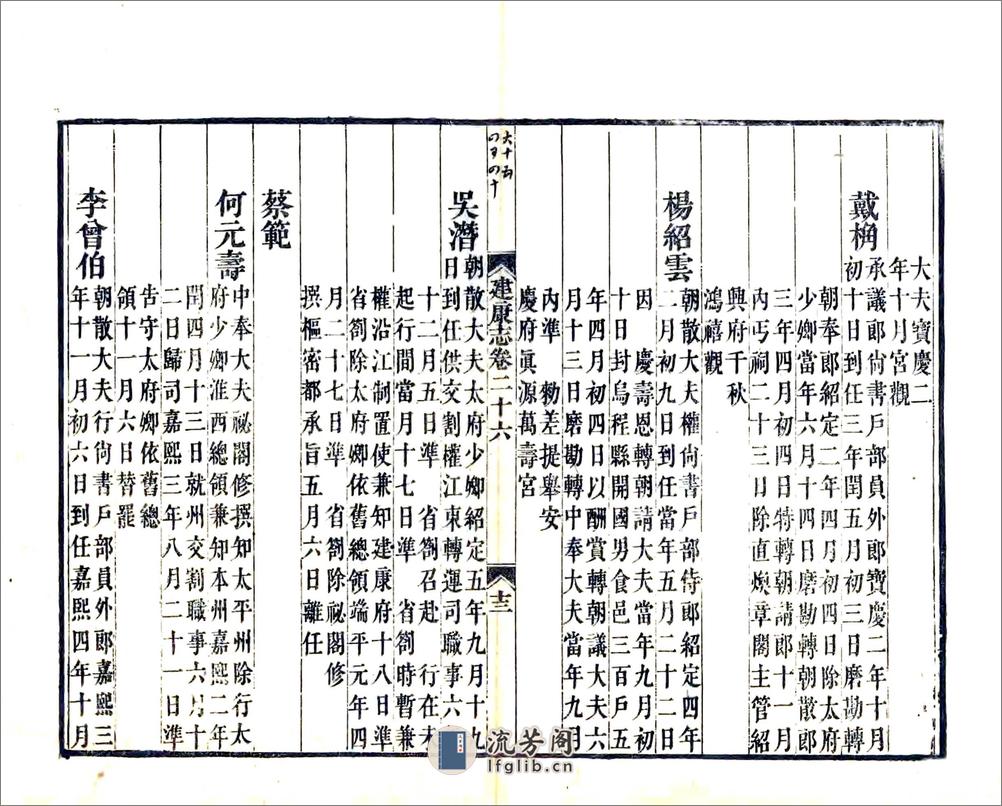 大夫寶慶二
年十月宮觀
戴桷承議郎尚書戶部員外郎寶慶二年十月
初十日到任三年閏五月初三日磨勘轉
朝奉郎紹定二年四月初四日除太府
少卿當年六月十四日磨勘轉朝散郎
三年四月初四日特轉朝請郎十一月
內丐祠二十三日除直煥章閣主管紹
興府千秋
鴻禧觀
楊紹雲朝散大夫權尚書戶部侍郎紹定四年
二月初九日到任當年五月二十二日
因 慶壽恩轉朝請大夫當年九月初
十日封烏程縣開國男食邑三百戶五
年四月初四日以酬賞轉朝議大夫六
月十三日磨勘轉中奉大夫當年九月
內準 勑差提舉安
慶府真源萬壽宮
大十五
建康志卷二十六
十三
吳潛朝散大夫太府少卿紹定五年九月十九
日到任供交割權江東轉運司職事六年
十二月五日準 省劄召赴 行在未
起行間當月十七日準 省劄時暫兼
權沿江制置使兼知建康府十八日準
省劄除太府卿依舊總領端平元年四
月二十七日準 省劄除祕閣修
撰樞密都承旨五月六日離任
蔡範
何元壽中奉大夫祕閣修撰知太平州除行太
府少卿淮西總領兼知本州嘉熙二年
閏四月十三日就州交割職事六月十
二日歸司嘉熙三年八月二十一日準
告守太府卿依舊總
領十一月六日替罷
李曾伯朝散大夫行尚書戶部員外郎嘉熙三
年十一月初六日到任嘉熙四年十月
流芳阁
lfglib.cn